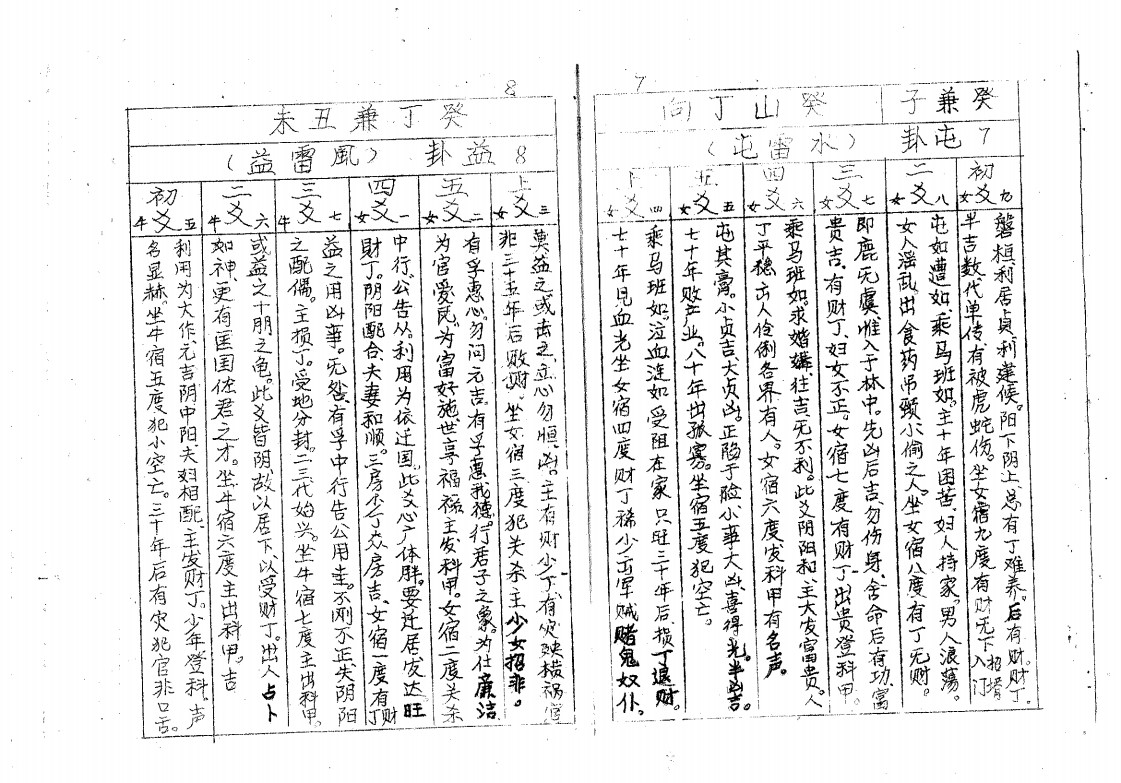 7
癸兼子
癸山丁向
7 屯卦
（水雷屯）
初爻 女九
磐桓,利居贞,利建侯。阳下阴上,总有丁难养。后有财。财丁
半吉数代单传,有被虎蛇伤。坐女宿九度有财无丁招婿入门
二爻 女八
屯如遭如,乘马班如。主十年困苦,妇人持家,男人浪荡。
女人淫乱出食药吊颈小偷之人。坐女宿八度有丁无财。
三爻 女七
即鹿无虞惟入于林中。先凶后吉,勿伤身,舍命后有功富
贵吉、有财丁、妇女不正。女宿七度有财丁出贵登科甲。
四爻 女六
乘马班如求婚媾,往吉无不利。此爻阴阳和、主大发富贵。人
丁平稳出人伶俐各界有人。女宿六度发科甲有名声。
五爻 女五
屯其膏。小贞吉大贞凶。正陷于险小事大凶,喜得光。半凶吉。
七十年败产业。八十年出孤寡。坐宿五度犯空亡。
上爻 女四
乘马班如,泣血涟如受阻在家 只旺三十年后,损丁退财。
七十年见血光坐女宿四度财丁稀少出军贼赌鬼奴仆。
8
癸丁兼丑未
8 益卦
（風雷益）
上爻 女三
莫益之或击之,立心勿恒,凶。主有财少丁,有灾殃横祸官
非 三十五年后败财。坐女宿三度犯关杀主少女招非。
五爻 女二
有孚惠心勿问元吉,有孚惠我德。行君子之象。为仕廉洁
为官爱民,为富好施世享福禄,主发科甲。女宿二度关杀
四爻 女一
中行,公告从。利用为依迁国,此爻心广体胖,要迁居发达旺
财丁。阴阳配合,夫妻和顺。三房少丁长房吉、女宿一度有丁财
三爻 牛七
益之用凶事。无咎,有孚中行告公用圭。不刚不正,失阴阳
之配偶。主损丁。受地分封。二三代始兴。坐牛宿七度主出科甲。
二爻 牛六
或益之十朋之龟。此爻皆阴,故以居下以受财丁。出人占卜
如神,更有匡国佐君之才。坐牛宿六度主出科甲。吉
初爻 牛五
利用为大作,元吉阴中阳,夫妇相配、主发财丁。少年登科,声
名显赫。坐牛宿五度犯小空亡。三十年后有灾犯官非口舌。